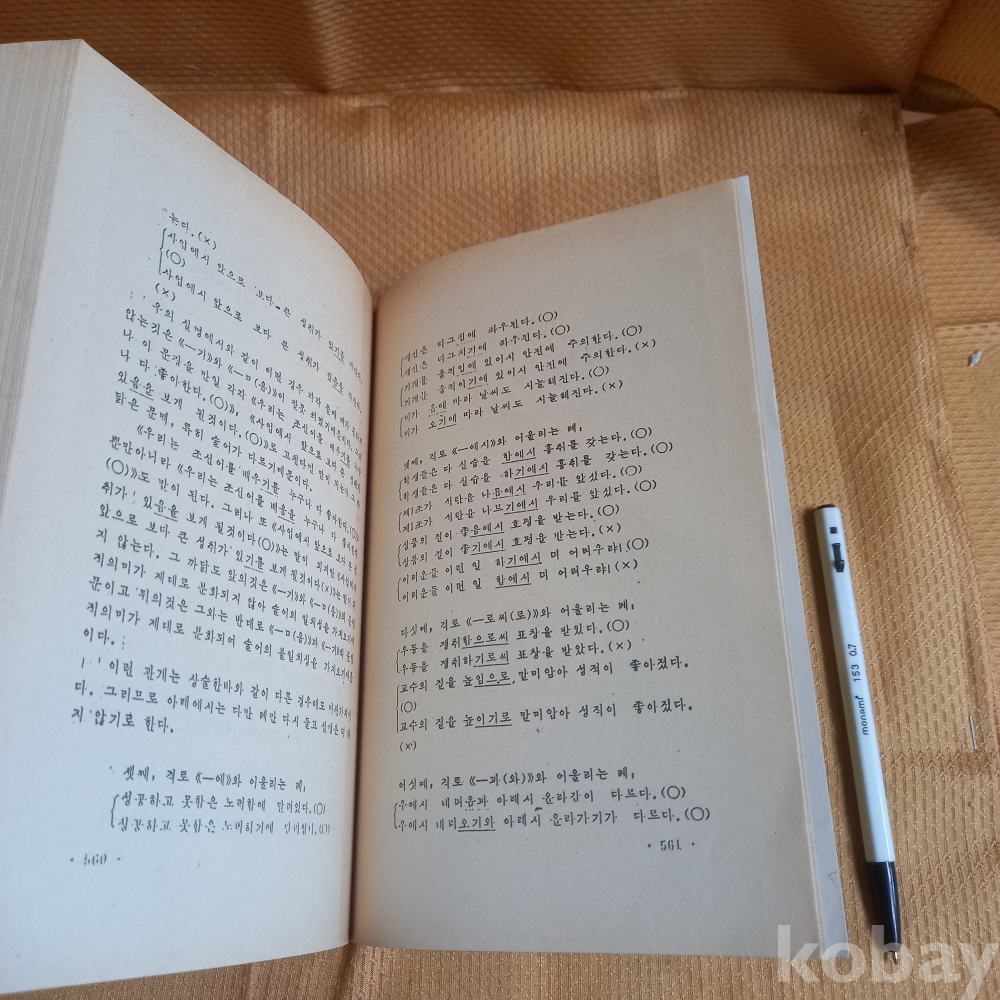 는다.(×)
사업에서 앞으로 보다 큰 성취가 있기를
(○)
사업에서 앞으로 보다 큰 성취가 있음을
(×)
우의 실명에서와 같이 이런 경우 각각
않는것은 《—기》와 《—ㅁ(음)》이 잘못 되였기때문이다.
나 이 문장을 만일 각각 《우리는 조선어를 배우기를 누구
나 다 좋아한다.(○)》, 《사업에서 앞으로 보다 큰 성취가
있음을 보게 될것이다.(○)》로 고친다면 말이 되는데 그
닭은 문맥, 특히 술어가 다르기때문이다.
《우리는 조선어를 배우기를 누구나 다 좋아한다.(○)》
뿐만아니라 《우리는 조선어를 배움을 누구나 다 좋아한다.
(○)》도 말이 된다. 그러나 또 《사업에서 앞으로 보다 큰 성
취가 있음을 보게 될것이다(○)》는 말이 되지만 《사업에서
앞으로 보다 큰 성취가 있기를 보게 될것이다(×)》는 말이 되
지 않는다. 그 까닭도 앞의것은 《—기》와 《—ㅁ(음)》의
적의미가 제대로 분화되지 않아 술어의 일치성을 가져오기때
문이고 뒤의것은 그와는 반대로 《—ㅁ(음)》과 《—기》의
적의미가 제대로 분화되어 술어의 불일치성을 가져오기때문
이다.
이런 관계는 상술한바와 같이 다른 경우에도 마찬가지이
다. 그러므로 아래에서는 다만 례만 다시 들고 설명은 더 하
지 않기로 한다.
셋째, 격토 《—에》와 어울리는 례;
성공하고 못함은 노력함에 달려있다.(○)
성공하고 못함은 노력하기에 달려있다.(○)
· 560 ·
갱신은 다그침에 좌우된다.(○)
갱신은 다그치기에 좌우된다.(○)
기계를 움직임에 있어서 안전에 주의한다.(○)
기계를 움직이기에 있어서 안전에 주의한다.(×)
비가 옴에 따라 날씨도 시늘해진다.(○)
비가 오기에 따라 날씨도 시늘해진다.(×)
넷째, 격토 《—에서》와 어울리는 례;
학생들은 다 실습을 함에서 흥취를 갖는다.(○)
학생들은 다 실습을 하기에서 흥취를 갖는다.(○)
제1조가 석탄을 나름에서 우리를 앞섰다.(○)
제1조가 석탄을 나르기에서 우리를 앞섰다.(○)
상품의 질이 좋음에서 호평을 받는다.(○)
상품의 질이 좋기에서 호평을 받는다.(×)
어려운들 이런 일 하기에서 더 어려우랴!(○)
어려운들 이런 일 함에서 더 어려우랴!(×)
다섯째, 격토 《—로써(로)》와 어울리는 례;
우등을 쟁취함으로써 표창을 받았다.(○)
우등을 쟁취하기로써 표창을 받았다.(×)
교수의 질을 높임으로 말미암아 성적이 좋아졌다.
(○)
교수의 질을 높이기로 말미암아 성적이 좋아졌다.
(×)
여섯째, 격토 《—과(와)》와 어울리는 례;
우에서 내려옴과 아래서 올라감이 다르다.(○)
우에서 내려오기와 아래서 올라가기가 다르다.(○)
· 561 ·
monami 153 0.7
kobay